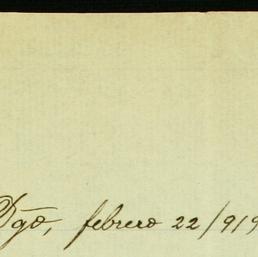 Dgo, febrero 22/919